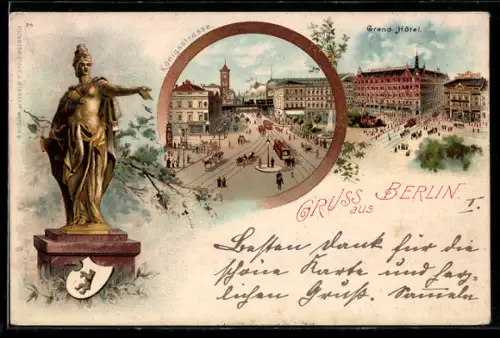 24
Königsstrasse.
Grand-Hôtel.
GRUSS
aus
BERLIN.
Besten Dank für die
schöne Karte und herz-
lichen Gruß. Sammeln